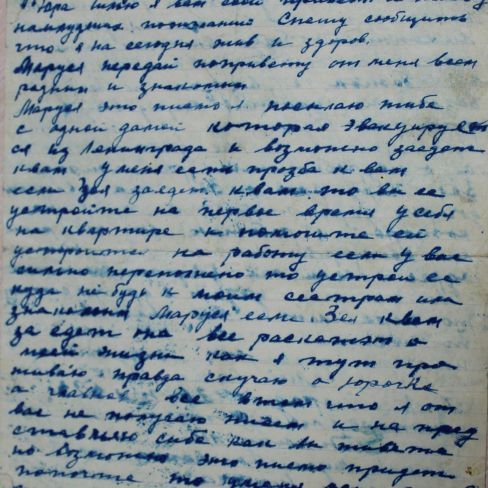 Юра шлю я вам свой
наилудших пожеланий Спешу сообщить
что я на сегодня жив и здоров.
Маруся передай по привету от меня всем
родным и знакомым
Маруся это писмо я посылаю тибе
с одной дамой которая эвакуирует
ся из Ленинграда и возможно заедет
к вам у меня есть прозба к вам
если Зоя заедет к вам то вы ее
устройте на первое время у себя
на квартире и помогите ей
устроится на работу если у вас
сильно переполнено то устрой ее
куда не будь к моим сестрам или
знакомым Маруся если Зоя к вам
за едет она все раскажет о
моей жизни как я тут про
живаю правда скучаю о Юрочке
а главное все в том что я от
вас не получаю писем и не пред
ставляю себе как вы живете
но возможно это писмо придет